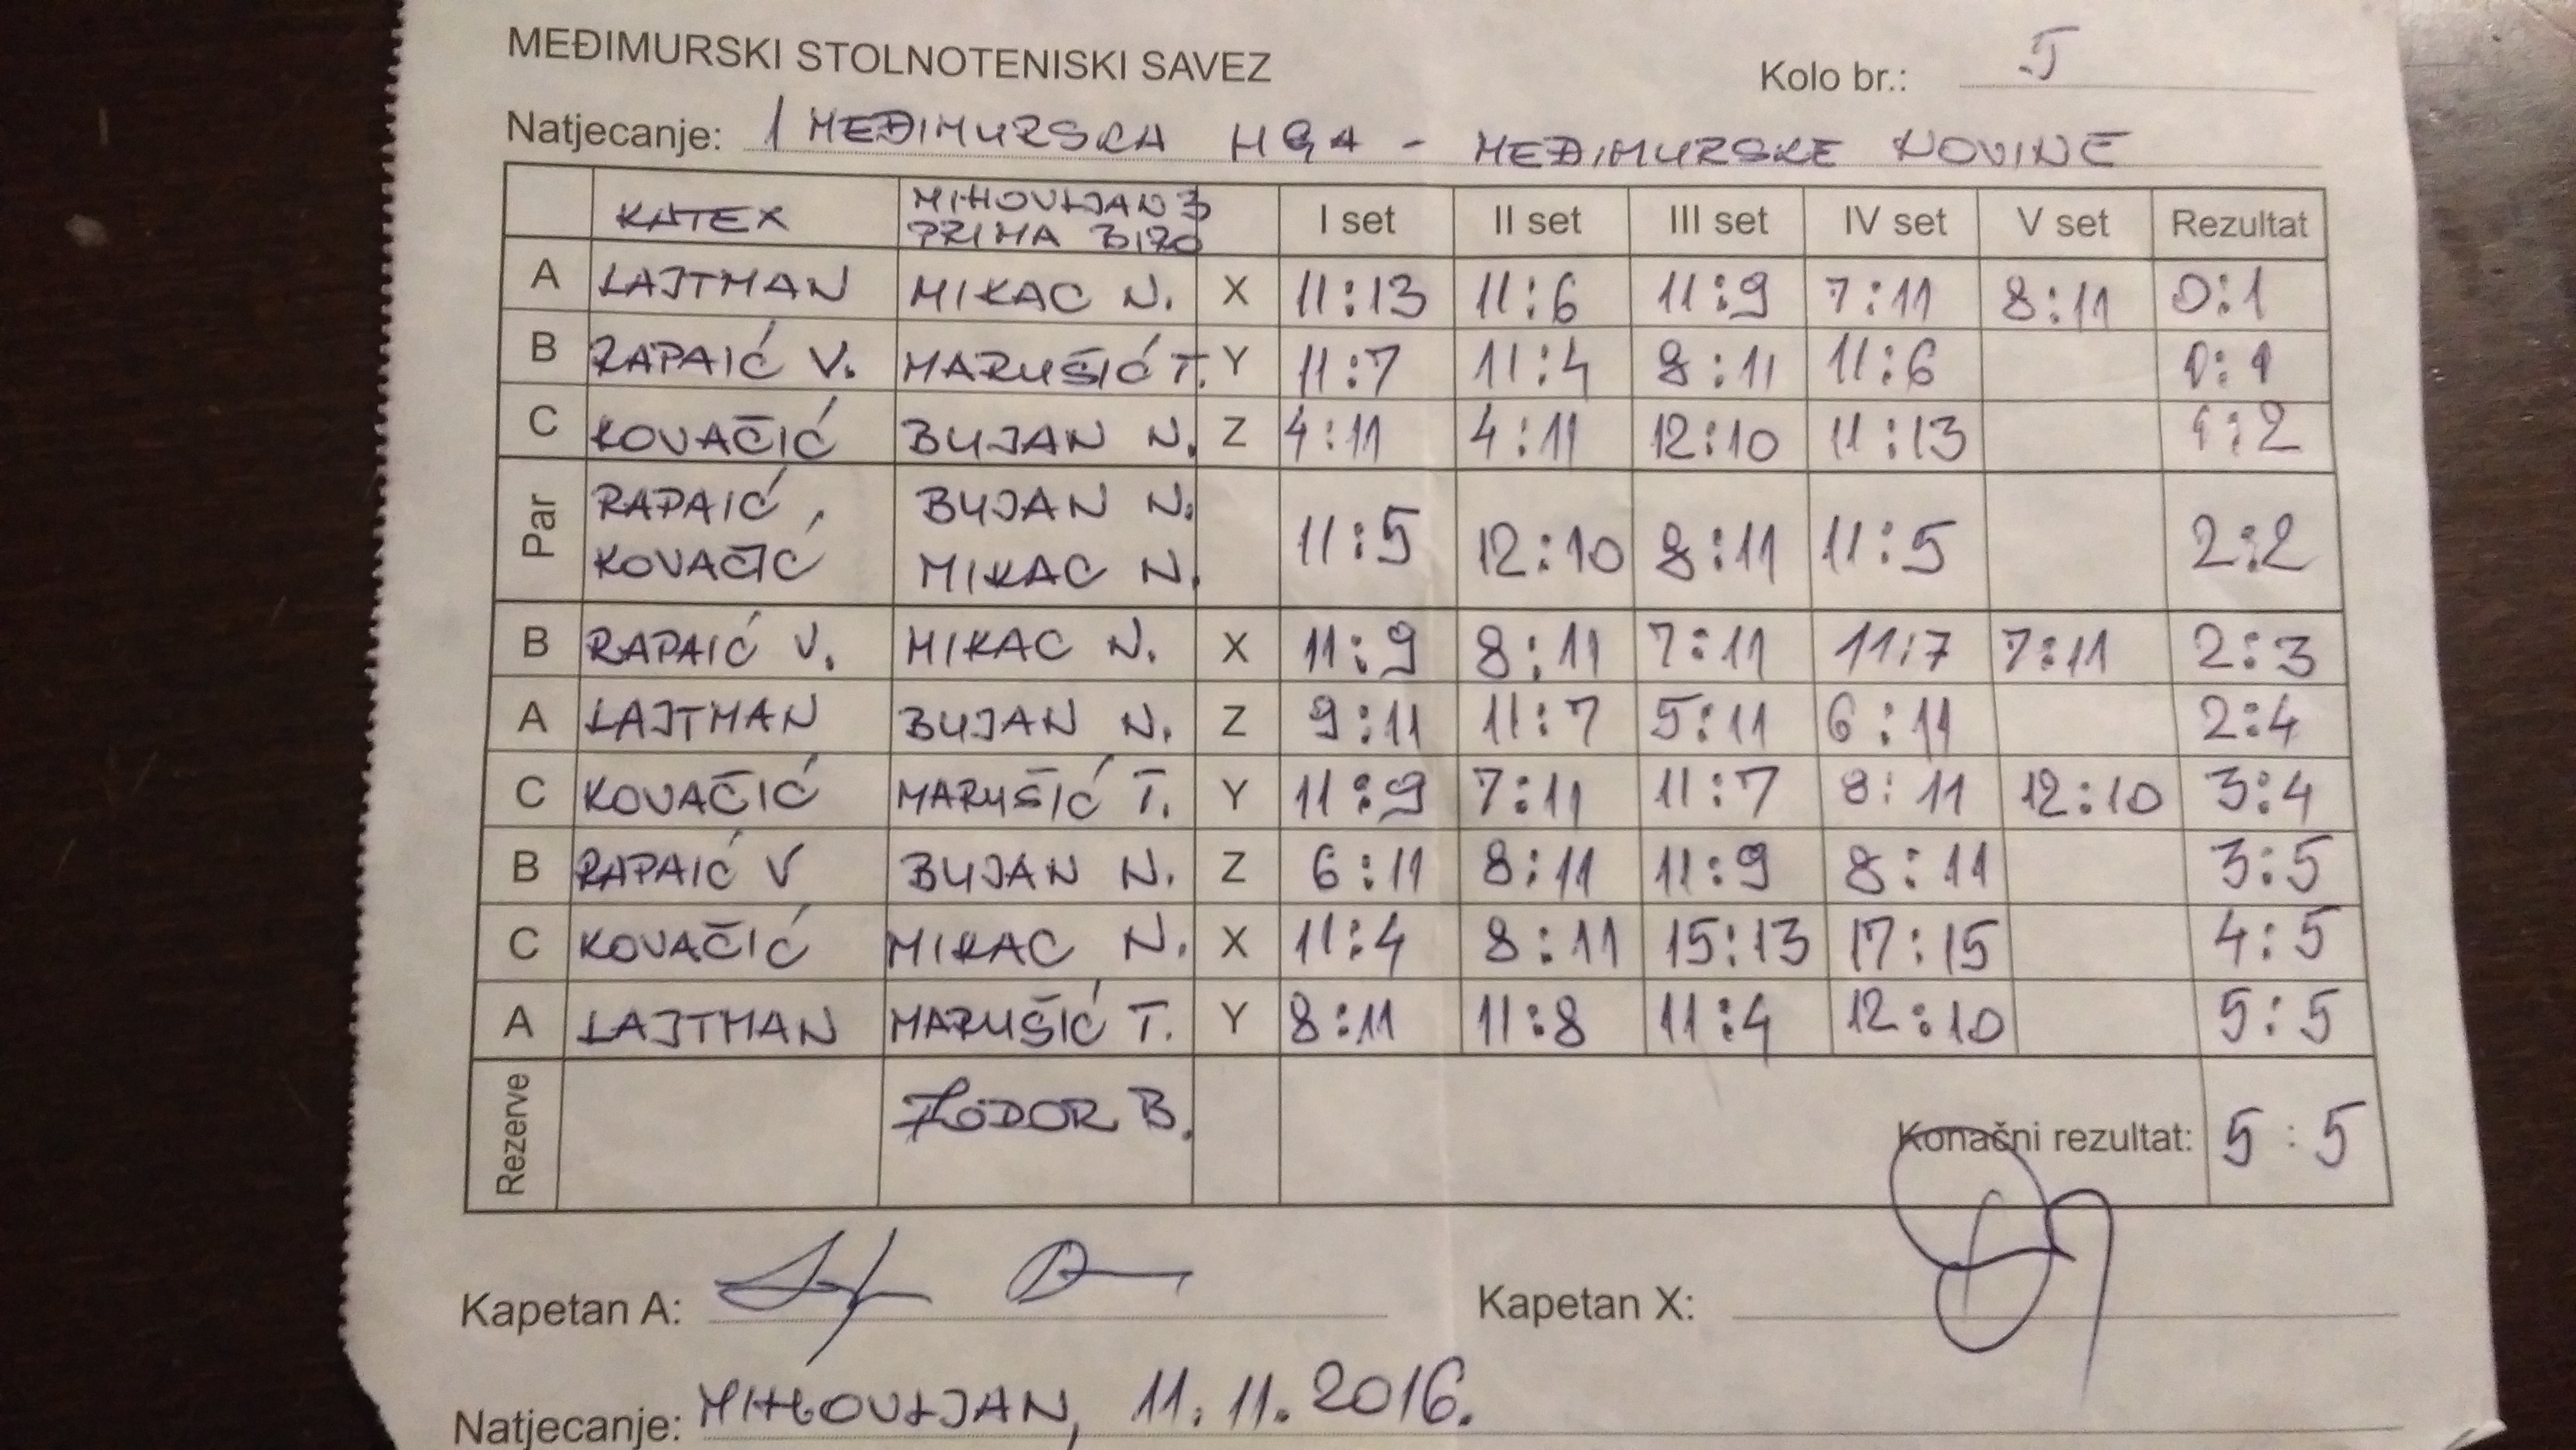 MEĐIMURSKI STOLNOTENISKI SAVEZ
Kolo br.: 5
Natjecanje: 1 MEĐIMURSKA - MEĐIMURSKE NOVINE
KATEX MIHOVLJAN 3 PRIMA BIRO I set II set III set IV set V set Rezultat
A LAJTMAN MIKAC N. X 11:13 11:6 11:9 7:11 8:11 0:1
B RAPAIĆ V. MARUŠIĆ T. Y 11:7 11:4 8:11 11:6
C KOVAČIĆ BUJAN N. Z 4:11 4:11 12:10 11:13 1:2
Par RAPAIĆ, BUJAN N. 11:5 12:10 8:11 11:5 2:2
KOVAČIĆ MIKAC N.
B RAPAIĆ V. MIKAC N. X 11:9 8:11 7:11 11:7 7:11 2:3
A LAJTMAN BUJAN N. Z 9:11 11:7 5:11 6:11 2:4
C KOVAČIĆ MARUŠIĆ T. Y 11:9 7:11 11:7 8:11 12:10 3:4
B RAPAIĆ V BUJAN N. Z 6:11 8:11 11:9 8:11 3:5
C KOVAČIĆ MIKAC N. X 11:4 8:11 15:13 17:15 4:5
A LAJTMAN MARUŠIĆ T. Y 8:11 11:8 11:4 12:10 5:5
Rezerve B. Konačni rezultat: 5:5
Kapetan A: Kapetan X:
Natjecanje: MIHOVLJAN, 11.11.2016.